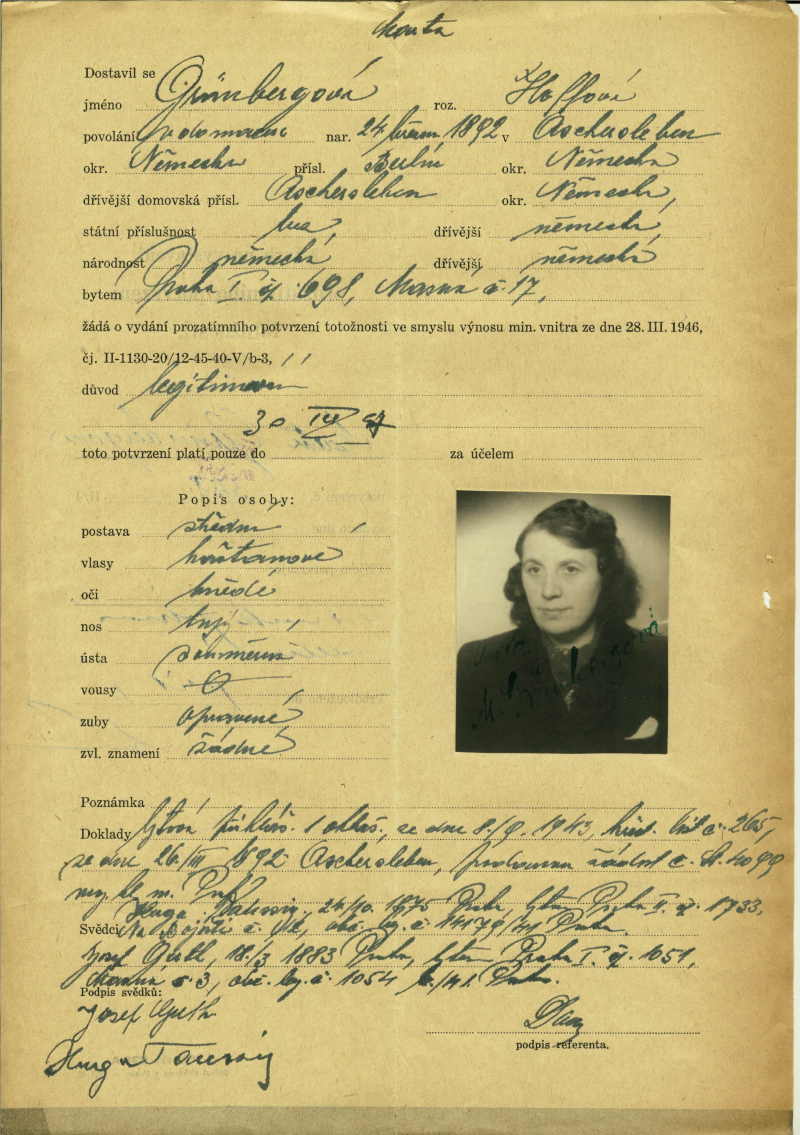 Dostavil se
jméno Grünbergová roz. Hoffová
povolání v domácnosti nar. 24. března 1892 v Aschersleben
okr. Německo přísl. Berlín okr. Německo
dřívější domovská přísl. Aschersleben okr. Německo,
státní příslušnost bez, dřívější německá,
národnost německá dřívější německá
bytem Praha I. čp 698, Masná č. 17,
žádá o vydání prozatímního potvrzení totožnosti ve smyslu výnosu min. vnitra ze dne 28. III. 1946,
čj. II-1130-20/12-45-40-V/b-3,
důvod legitimování
toto potvrzení platí pouze do 30 za účelem
Popis osoby:
postava střední
vlasy kaštanové
oči hnědé
nos tupý
ústa souměrná
vousy
zuby opravené
zvl. znamení žádné
M. Grünbergová
Poznámka
Doklady přihláš. ze dne 8./9. 1943, křest. list č. 265,
ze dne 26./III 1892 Aschersleben, žádost č.
Svědci Hugo Taussig, 24/10. 1875 Praha, bytem Praha II. čp. 1733,
Na Bojišti č. obč. leg. č. 14179/41 Praha.
Josef Guth, 18./3 1883 Praha, bytem Praha I. čp. 1051,
Masná č. 3, obč. leg. č. 1054 Praha.
Podpis svědků:
Josef Guth
Hugo Taussig
podpis referenta.